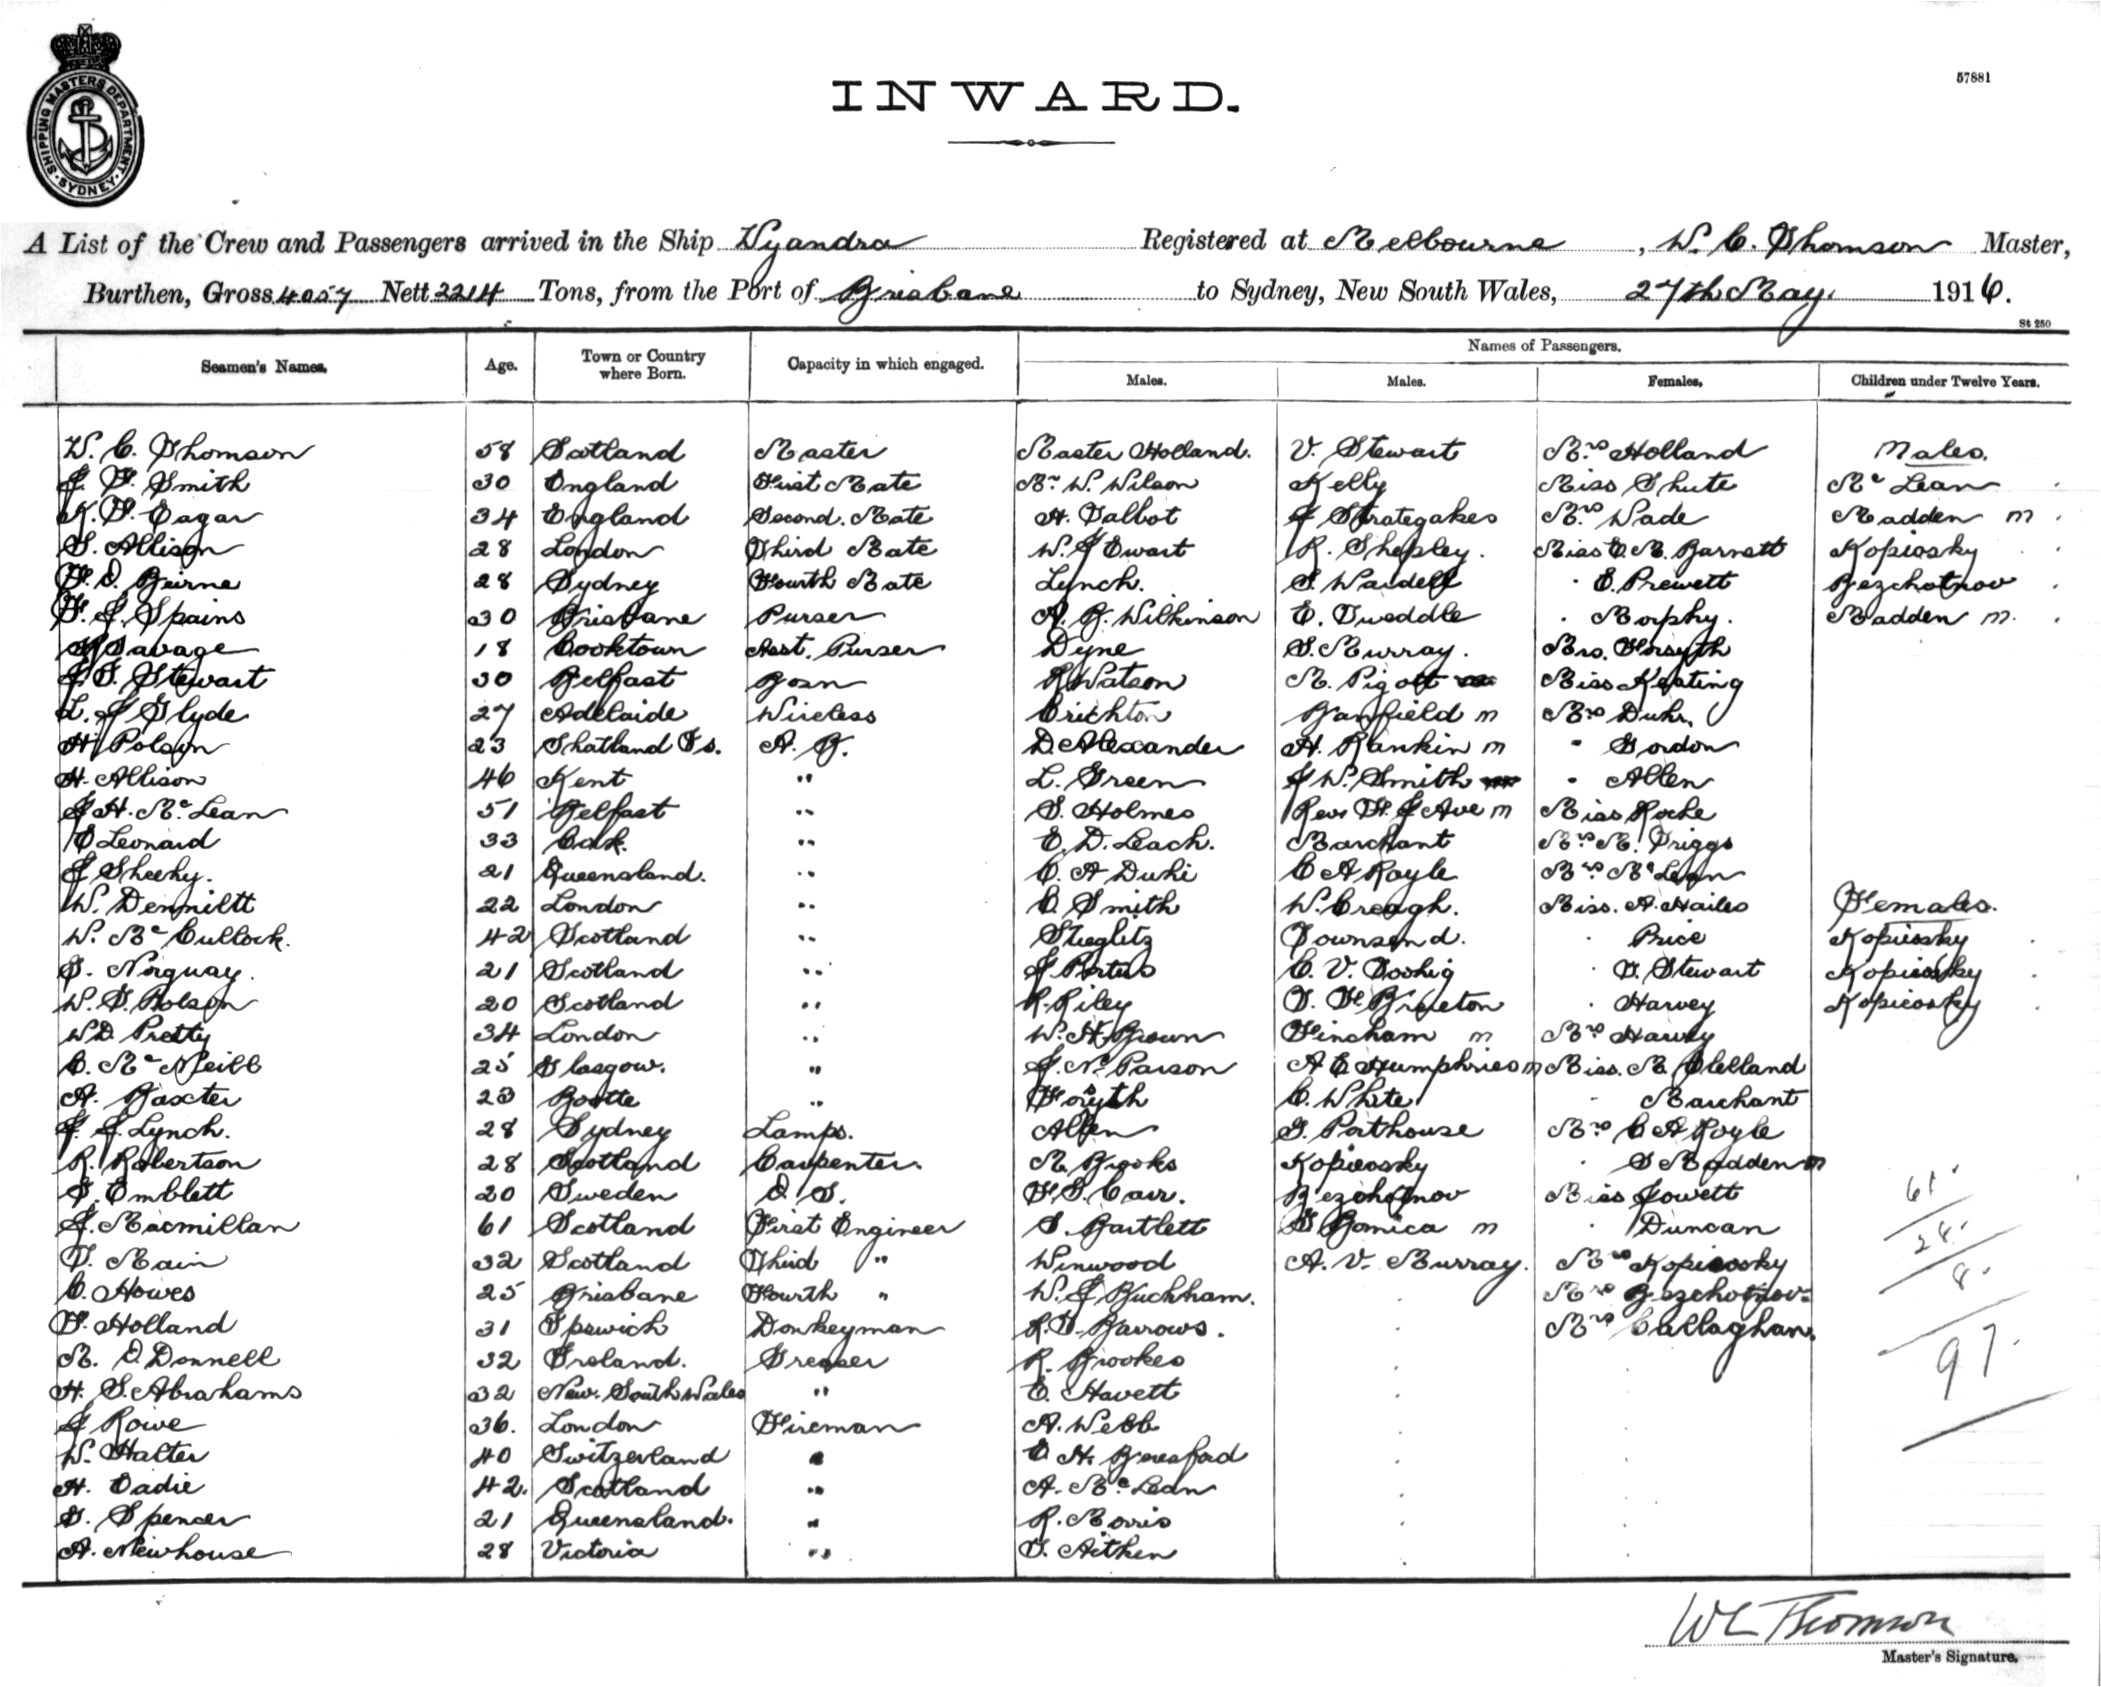 SHIPPING MASTERS DEPARTMENT SYDNEY
57881
INWARD.
A List of the Crew and Passengers arrived in the Ship Wyandra Registered at Melbourne, W. C. Thomson Master,
Burthen, Gross 4057 Nett 2214 Tons, from the Port of Brisbane to Sydney, New South Wales, 27th May. 1916.
St 250
Seamen's Names. Age. Town or Country where Born. Capacity in which engaged. Names of Passengers.
Males. Males. Females. Children under Twelve Years.
W. C. Thomson 58 Scotland Master Master Holland. V. Stewart Mrs Holland Males.
J. F. Smith 30 England First Mate Mr W. Wilson Kelly Miss Shute Mc Lean
K. F. Eagar 34 England Second. Mate H. Talbot J Strategakes Mrs Wade Madden m
S. Allison 28 London Third Mate W. J Ewart R. Shepley. Miss E M. Barnett Kopiosky
F. O. Beirne 28 Sydney Fourth Mate Lynch. S. Wardell " E. Prewett Bezchotnov
F. J. Spains 30 Brisbane Purser A. B. Wilkinson E. Tweddle " Morphy. Madden m.
Savage 18 Cooktown Asst. Purser Dyne S. Murray. Mrs. Forsyth
J. S. Stewart 30 Belfast Bosn R Watson M. Pigott Miss Keating
L. J Glyde 27 Adelaide Wireless Crichton Banfield m Mrs Duhi,
H. Polson 23 Shatland Is. A. B. D. Alexander H. Rankin m " Gordon
H. Allison 46 Kent " L. Green J W. Smith " Allen
J H. Mc Lean 51 Belfast " S. Holmes Rev. F. J Ave m Miss Roche
E Leonard 33 Cork. " E. D. Leach. Marchant Mrs M. Triggs
J Sheehy. 21 Queensland. " C. A Duhi C A Royle Mrs Mc Lean
W. Denmiltt 22 London " C. Smith W. Creagh. Miss. A. Hailes Females.
W. Mc Cullock. 42 Scotland " Stieglitz Townsend. " Price Kopiosky
S. Norquay. 21 Scotland " J. Portus C. V. Toohig " T. Stewart Kopiosky
W. S. Polson 20 Scotland " R. Riley T. F. Brereton " Harvey Kopiosky
W D. Pretty 34 London " W. H. Brown Fincham m Mrs Harvey
C. Mc Neill 25 Glasgow. " J. N. Parson A E Humphries m Miss. M. Clelland
A. Baxter 23 Bootle " Forsyth C. White " Marchant
J. J. Lynch. 28 Sydney Lamps. Allen G. Porthouse Mrs C A Royle
R. Robertson 28 Scotland Carpenter. M Brooks Kopiosky " S Madden m
S. Emblett 20 Sweden O. S. F. G. Carr. Bezchotnov Miss Jowett
J. Macmillan 61 Scotland First Engineer S. Bartlett G Bonica m " Duncan
T. Main 32 Scotland Third " Winwood A. V. Murray. Mrs Kopiosky
C. Howes 25 Brisbane Fourth " W. J Buckham. Mrs Bezchotnov
F. Holland 31 Ipswich Donkeyman R. T. Barrows. Mrs Callaghan.
M. O. Donnell 32 Ireland. Greaser R. Brookes
H. S. Abrahams 32 New. South Wales " E. Havett
J Rowe 36. London Fireman A. Webb
W. Halter 40 Switzerland " E. H. Beresford
H. Eadie 42. Scotland " A. Mc Lean
G. Spencer 21 Queensland. " R. Morris
A. Newhouse 28 Victoria " T. Aitken
61
28
8
97
W C Thomson
Master's Signature.